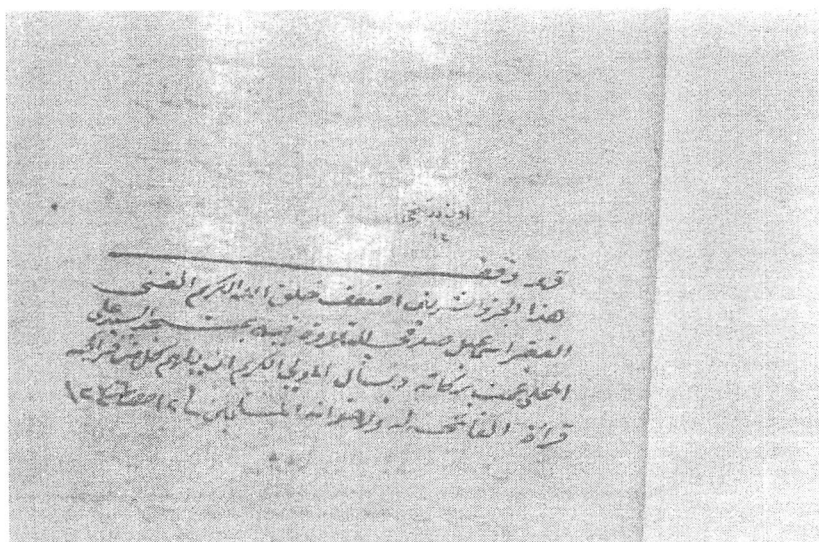 اون دردنجى
١٤
قد وقف
هذا الجزء الشريف اضعف خلق الله الكريم الغنى
الفقير اسماعيل صدقى للتلاوة فيه بمسجد السيد على
المحلى عمت بركاته ويسأل المولى الكريم ان يلهم كل من قرأ فيه
قرأة الفاتحة له ولاخوانه المسلمين